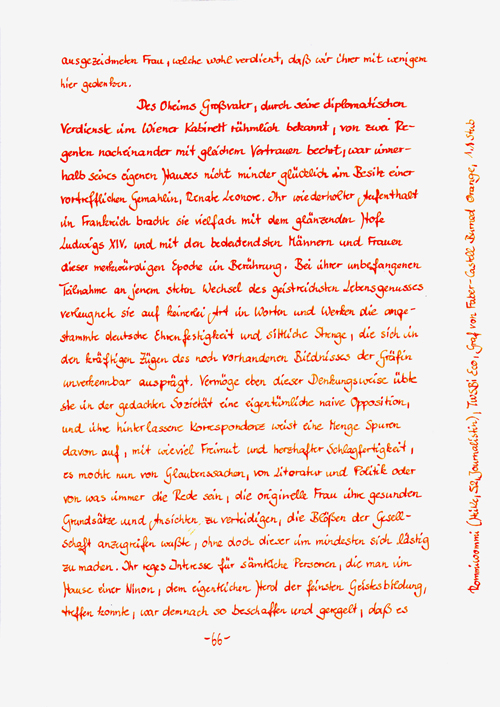 ausgezeichneten Frau, welche wohl verdient, daß wir ihrer mit wenigem
hier gedenken.
Des Oheims Großvater, durch seine diplomatischen
Verdienste im Wiener Kabinett rühmlich bekannt, von zwei Re-
genten nacheinander mit gleichem Vertrauen beehrt, war inner-
halb seines eigenen Hauses nicht minder glücklich im Besitz einer
vortrefflichen Gemahlin, Renate Leonore. Ihr wiederholter Aufenthalt
in Frankreich brachte sie vielfach mit dem glänzenden Hofe
Ludwigs XIV. und mit den bedeutendsten Männern und Frauen
dieser merkwürdigen Epoche in Berührung. Bei ihrer unbefangenen
Teilnahme an jenem steten Wechsel des geistreichsten Lebensgenusses
verleugnete sie auf keinerlei Art in Worten und Werken die ange-
stammte deutsche Ehrenfestigkeit und sittliche Strenge, die sich in
den kräftigen Zügen des noch vorhandenen Bildnisses der Gräfin
unverkennbar ausprägt. Vermöge eben dieser Denkungsweise übte
sie in der gedachten Sozietät eine eigentümliche naive Opposition,
und ihre hinterlassene Korrespondenz weist eine Menge Spuren
davon auf, mit wieviel Freimut und herzhafter Schlagfertigkeit,
es mochte nun von Glaubenssachen, von Literatur und Politik oder
von was immer die Rede sein, die originelle Frau ihre gesunden
Grundsätze und Ansichten zu verteidigen, die Blößen der Gesell-
schaft anzugreifen wußte, ohne doch dieser im mindesten sich lästig
zu machen. Ihr reges Interesse für sämtliche Personen, die man im
Hause einer Ninon, dem eigentlichen Herd der feinsten Geistesbildung,
treffen konnte, war demnach so beschaffen und geregelt, daß es
-66-
(Heike, 52, Journalistin), TWSBI Eco, Graf von Faber-Castell Burned Orange, 1.1 Stub